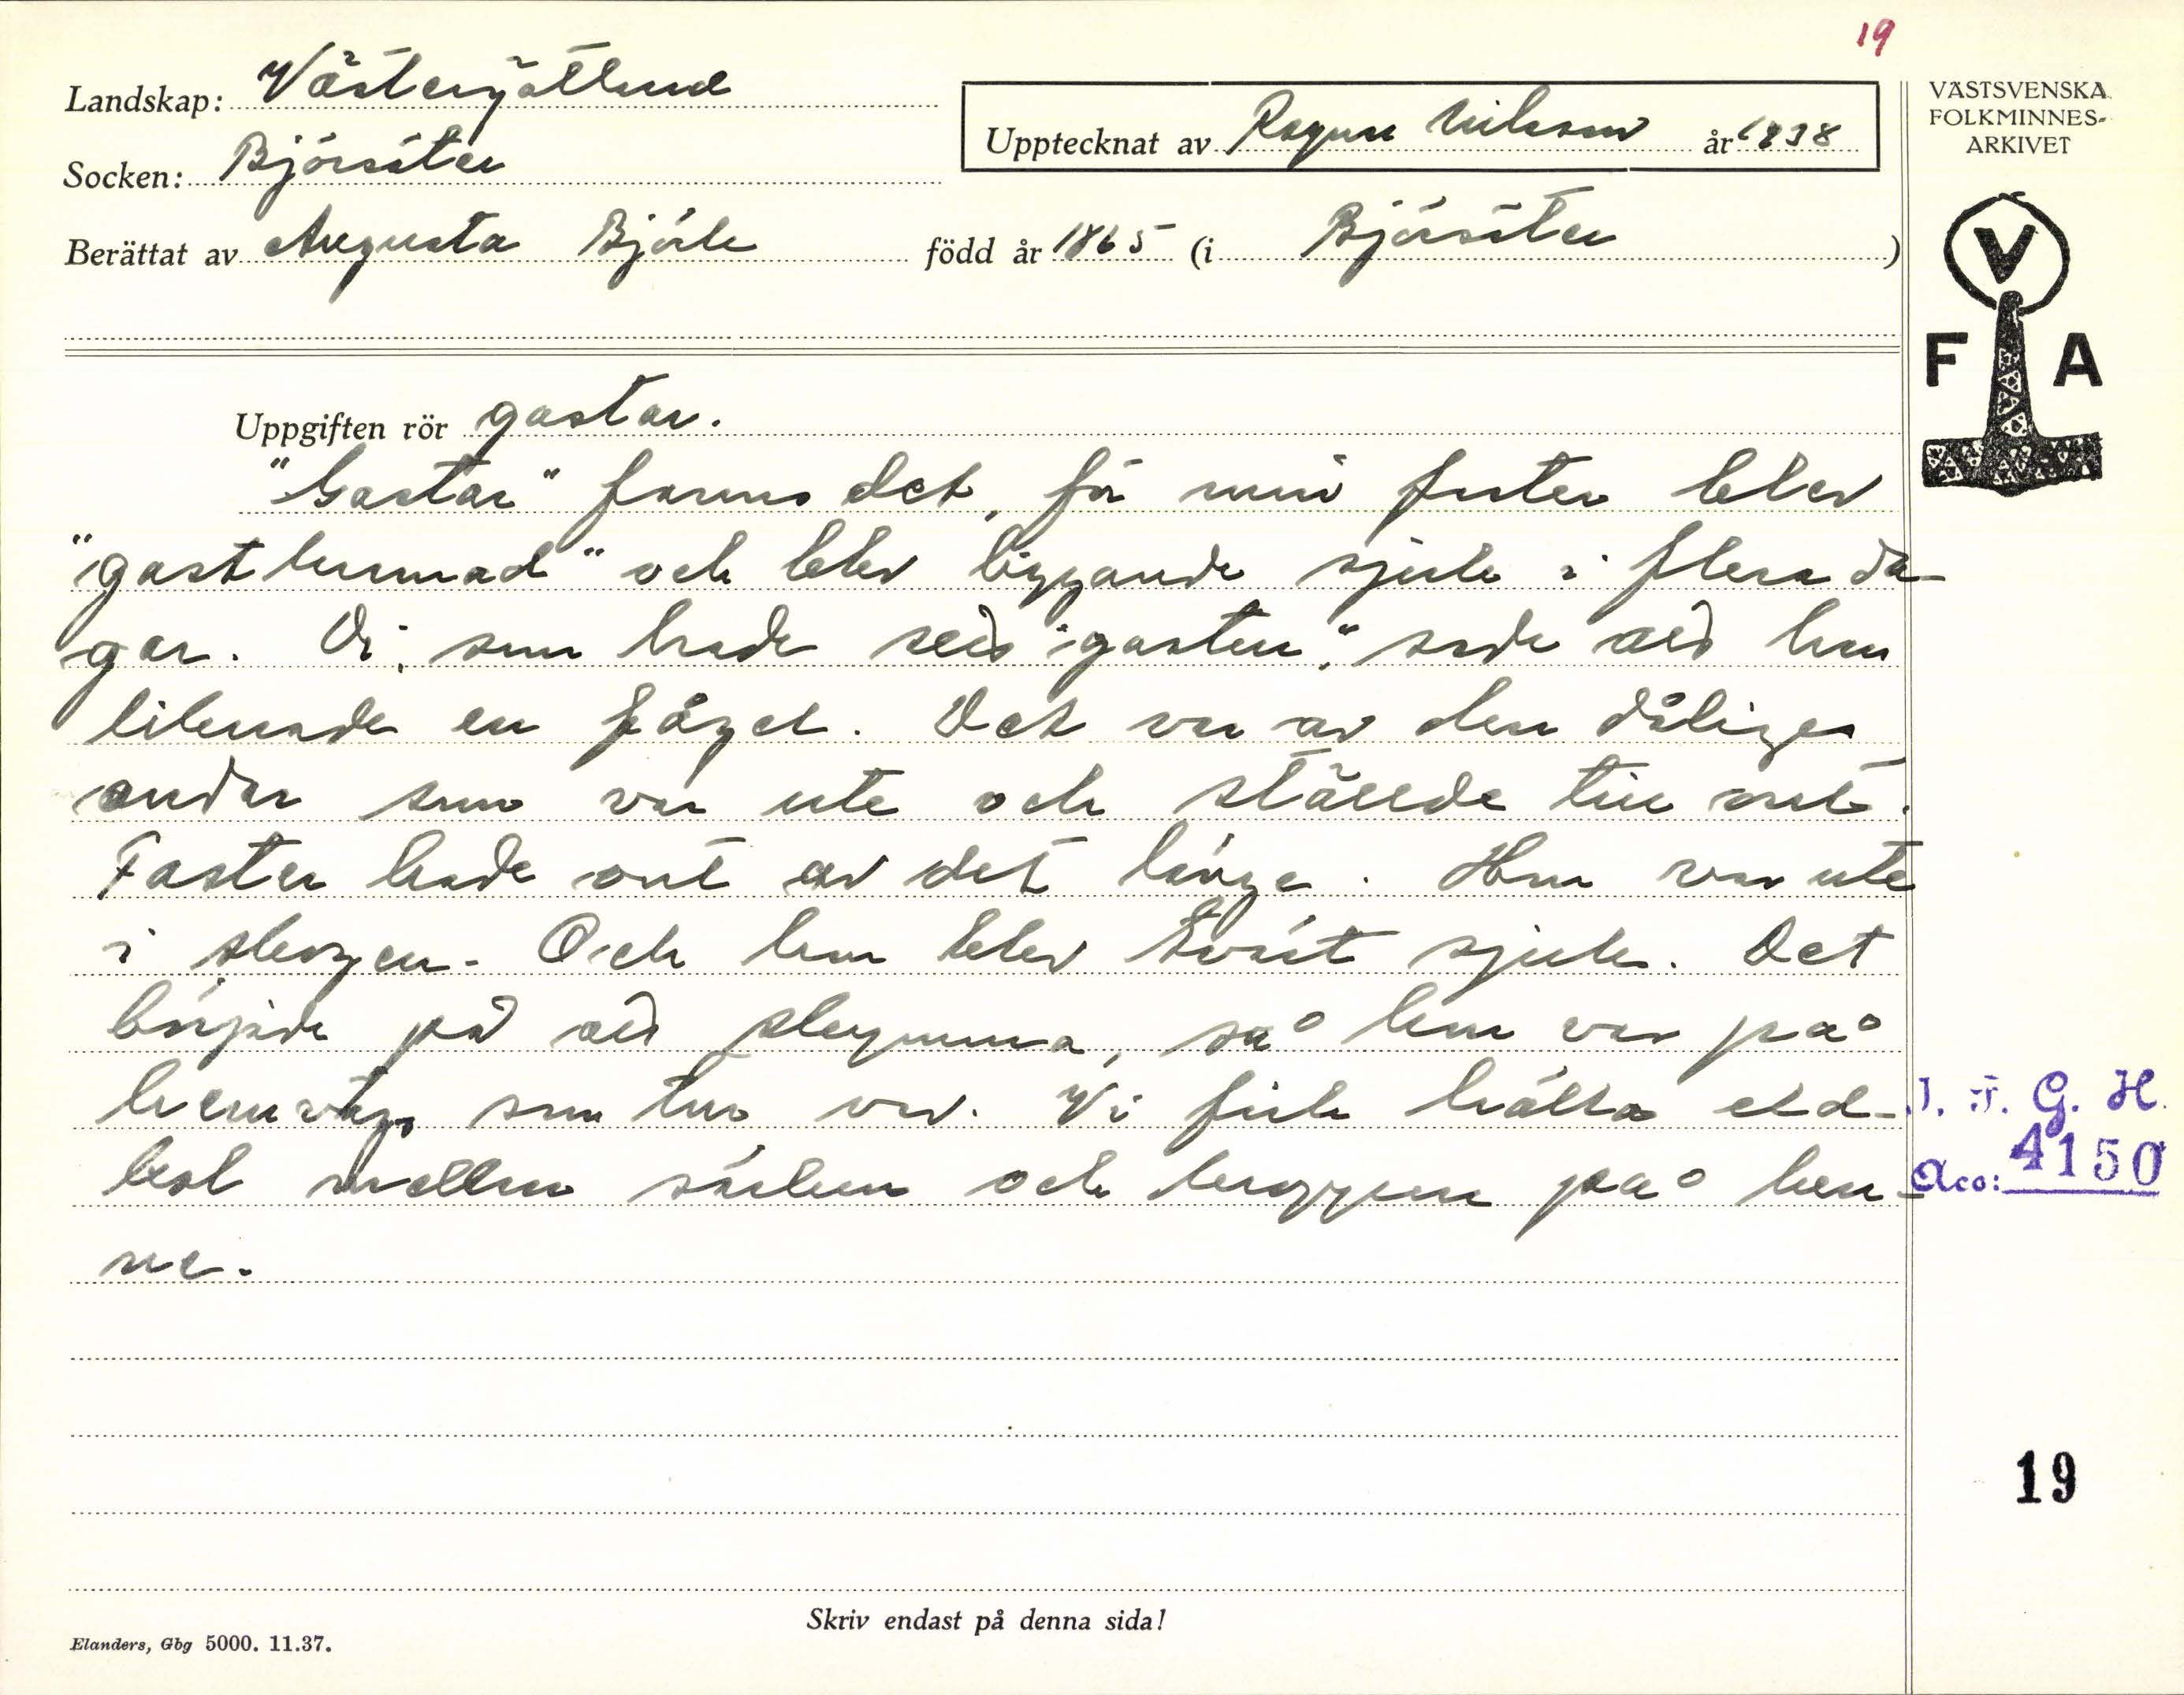 19
Landskap: Västergötland
Socken: Björsäter
Upptecknat av Ragnar Nilsson år 1938
Berättat av Augusta Björk född år 1865 (i Björsäter)
VÄSTSVENSKA
FOLKMINNES-
ARKIVET
V
F A
Uppgiften rör gastar.
"Gastar" fanns det, för min faster blev
"gastkramad" och blev liggande sjuk i flera da-
gar. Di, som hade sett "gasten," sade att han
liknade en fågel. Det var av den dåliga
andar som var ute och ställde till ont.
Faster hade ont av det länge. Hon var ute
i skogen. Och hon blev tvärt sjuk. Det
började på att skymma, så hon var på
hemväg, som tur var. Vi fick hälla eld-
kol mellan särken och kroppen på hen-
ne.
I. F. G. H.
Acc: 4150
19
Skriv endast på denna sida!
Elanders, Gbg 5000. 11.37.